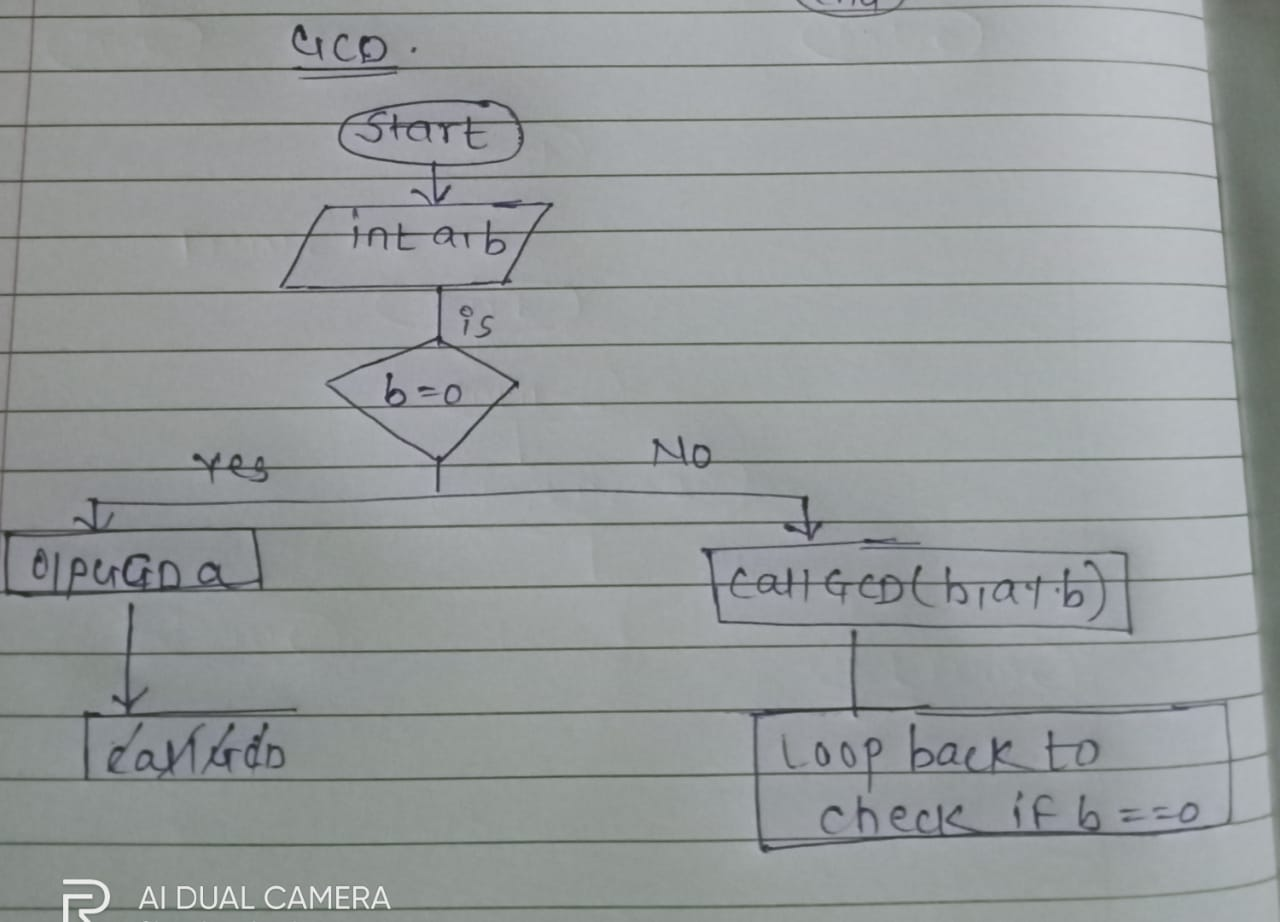 GCD.
Start
int a, b
is
b=0
Yes
No
O/P GCD a
Call GCD(b, a%b)
Call GCD
Loop back to
check if b ==0
AI DUAL CAMERA